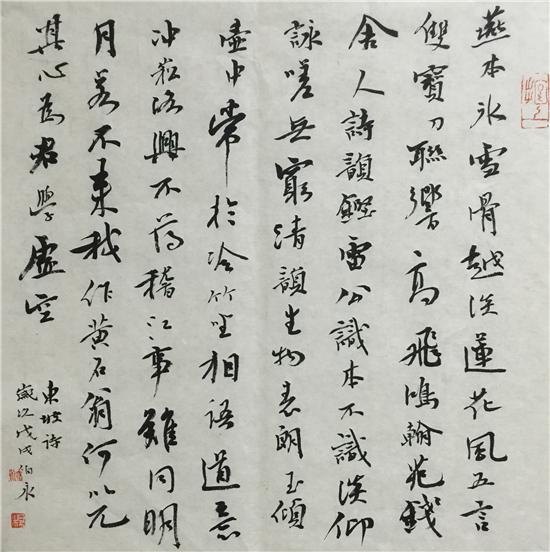 燕本冰雪骨越淡蓮花風五言
雙寶刀聯響高飛鴻翰苑錢
舍人詩韻鏗雷公識本不識淡仰
詠嗟無窮清韻生物表朗玉傾
壺中常於冷竹坐相語道意
沖崧洛興不薄稽江事難同明
月若不來我作黃石翁何以元
其心為君學虛空
東坡詩
歲次戊戌伯永